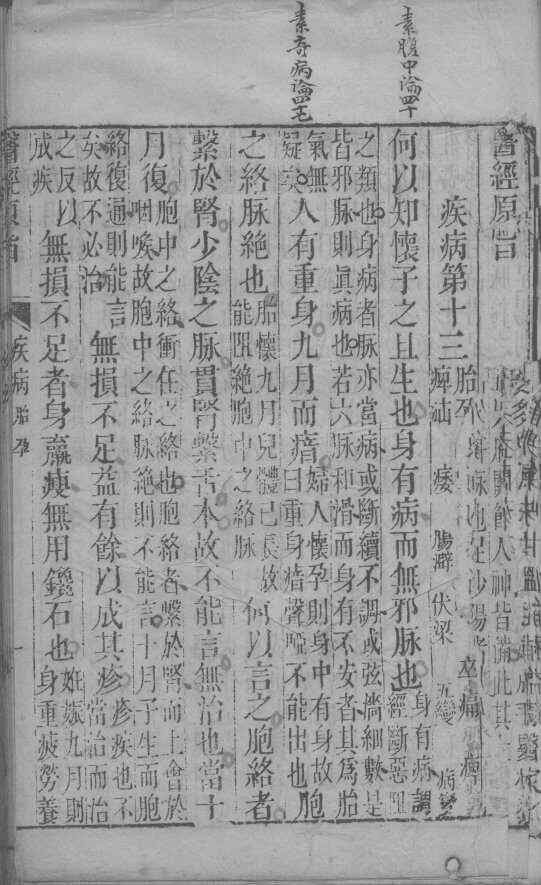 素腹中論四十
素奇病論四七
醫經原旨
疾病第十三
胎孕
痺疝 痿 腸澼 伏梁 五變
何以知懷子之且生也身有病而無邪脉也身有病謂經斷惡阻
之類也身病者脉亦當病或斷續不調或弦緔細數是
皆邪脉則眞病也若六脉和滑而身有不安者其爲胎
氣無疑矣人有重身九月而瘖婦人懷孕則身中有身故曰重身瘖聲啞不能出也胞
之絡脉絶也胎懷九月兒體已長故能阻絶胞中之絡脉何以言之胞絡者
繫於腎少陰之脉貫腎繫舌本故不能言無治也當十
月復胞中之絡衝任之絡也胞絡者繫於腎而上會於咽喉故胞中之絡脉絶則不能言十月子生而胞
絡復通則能言矣故不必治無損不足益有餘以成其疹疹疾也不當治而治
之反以成疾無損不足者身羸瘦無用鑱石也妊娠九月則身重疲勞養
醫經原旨
疾病 胎孕